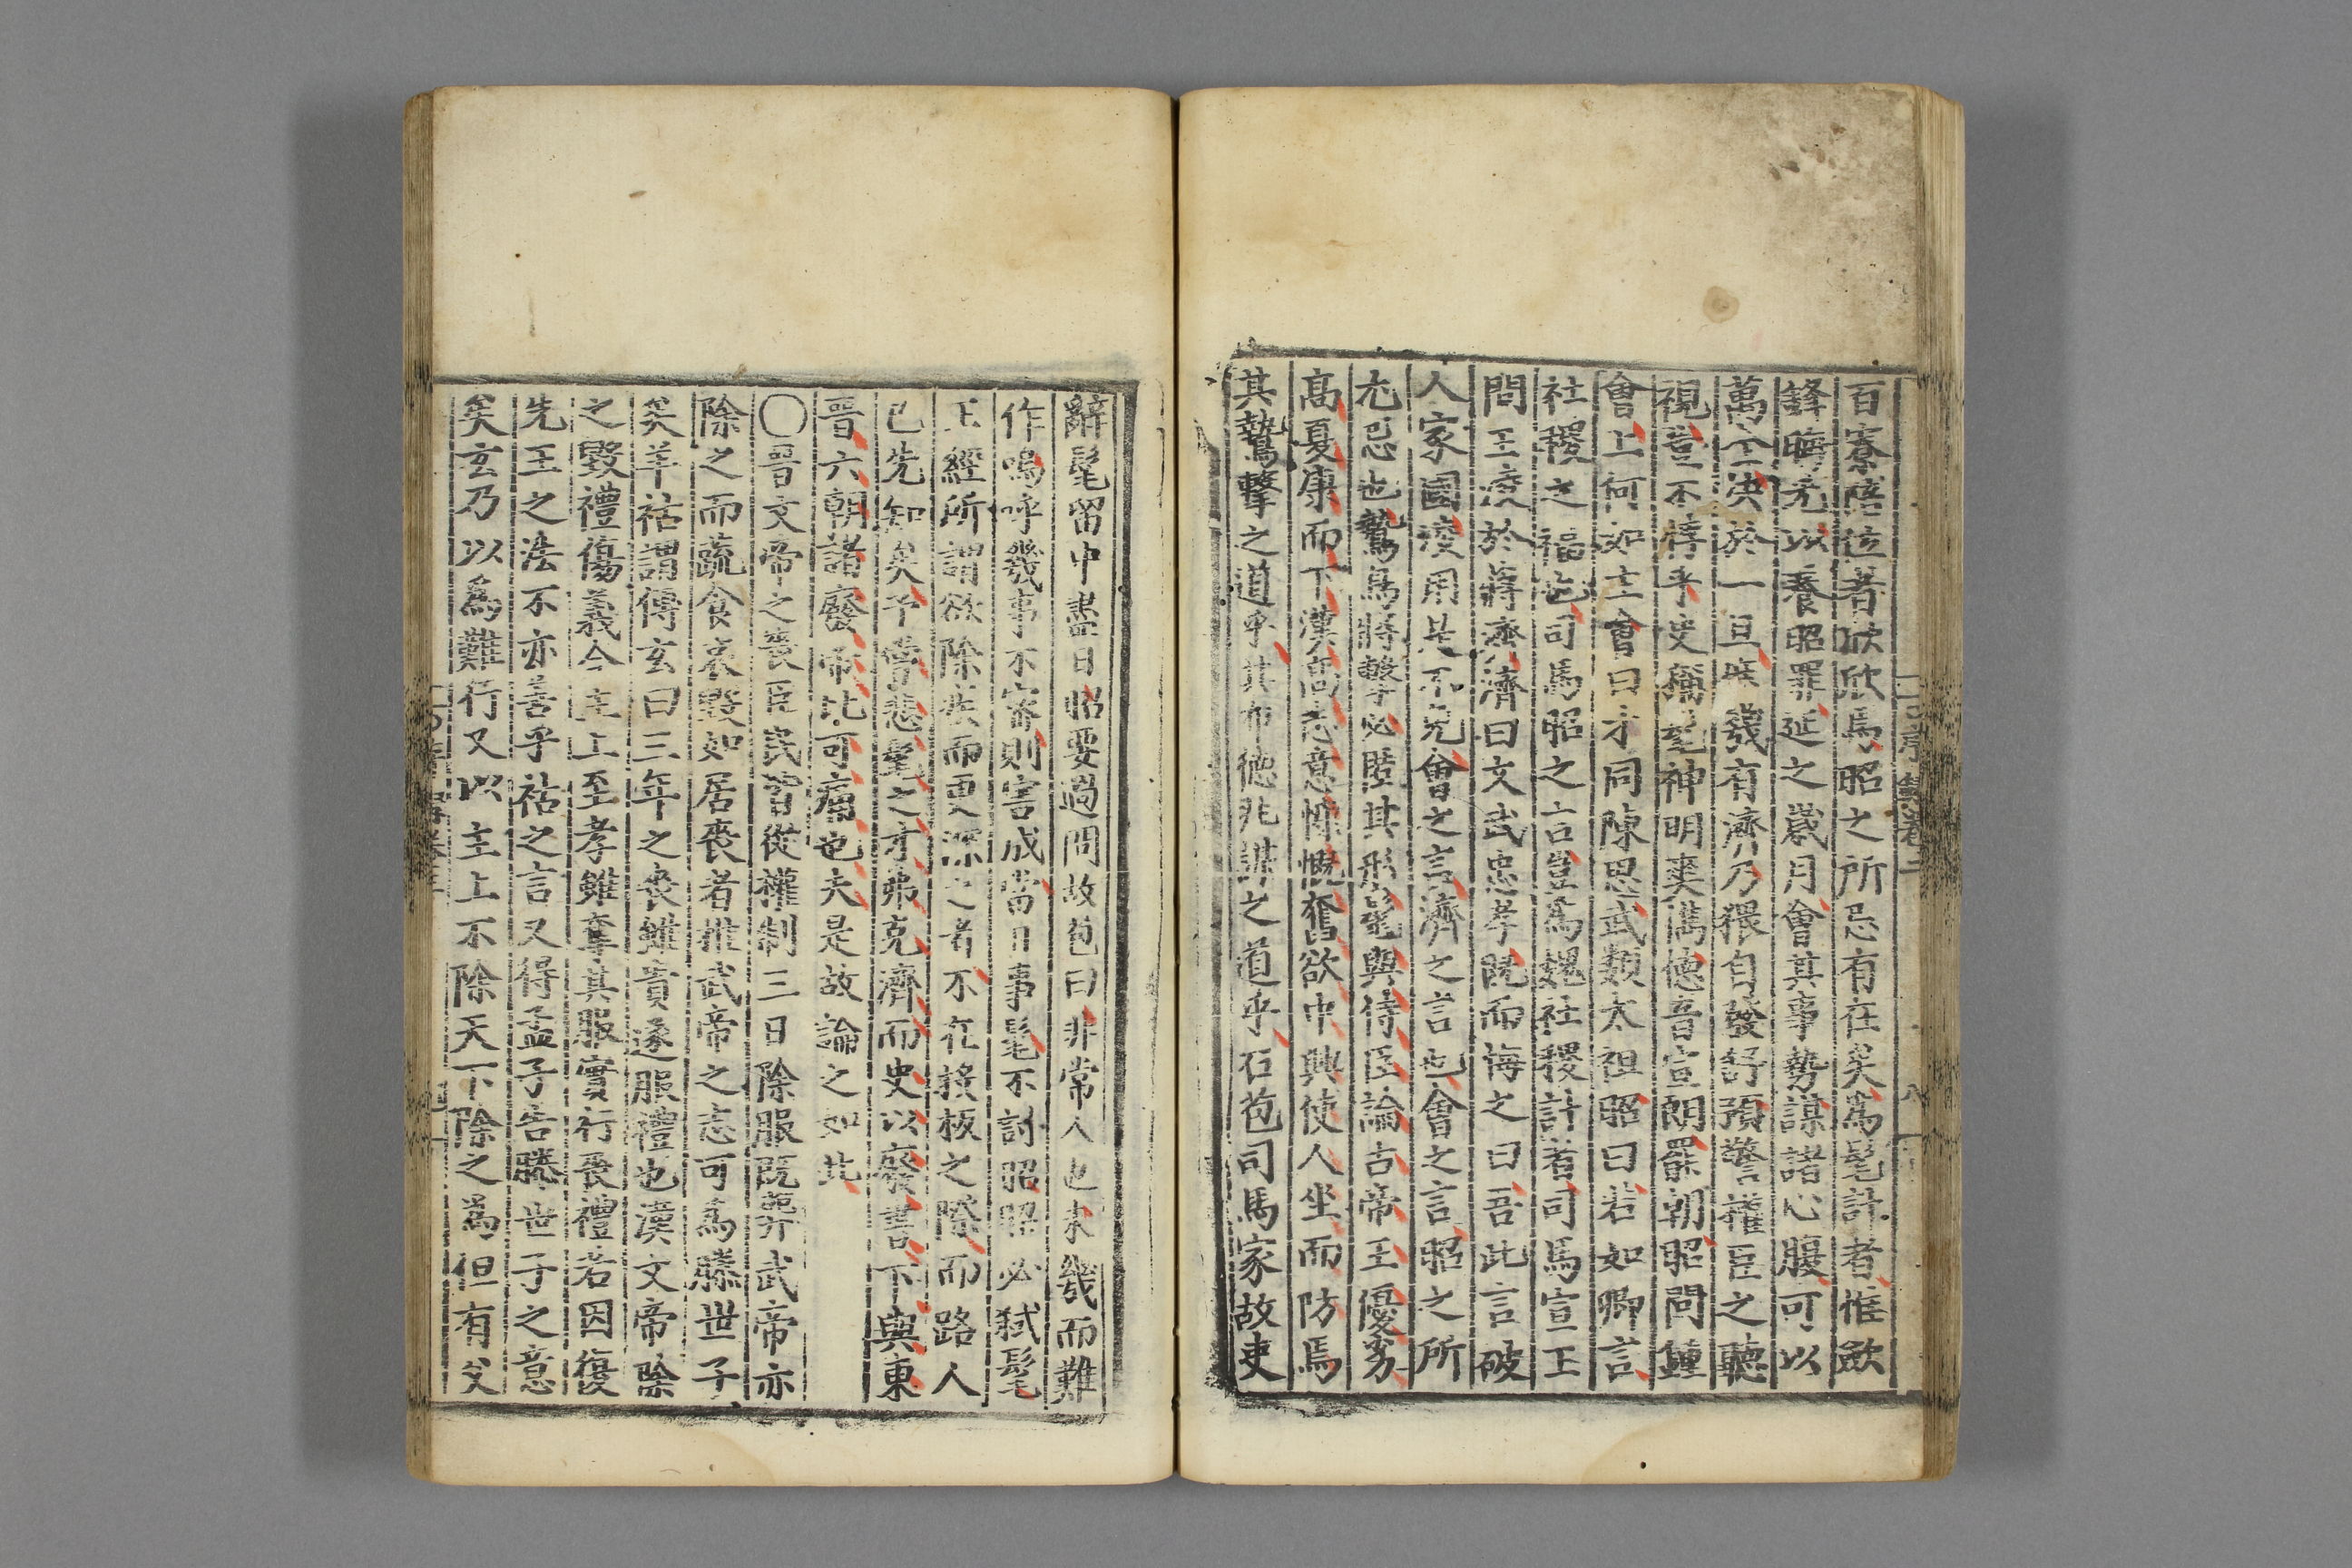 百寮陪位者欷歔焉昭之所忌有在矣爲髦計者惟斂
鋒晦光以養昭罪延之歲月會其事勢謀諸心腹可以
萬全決於一旦庶幾有濟乃猥自發舒預警權臣之聽
視豈不悖乎史稱髦神明爽儁德音宣朗罷朝昭問鍾
會上何如主會曰才同陳思武類太祖昭曰若如卿言
社稷之福也司馬昭之言豈爲魏社稷計者司馬宣王
問王凌於蔣濟濟曰文武忠孝旣而悔之曰吾此言破
人家國凌用是不免會之言濟之言也會之言昭之所
尢忌也鷙鳥將擊必匿其形髦與侍臣論古帝王優劣
高夏康而下漢高志意慷慨奮欲中興使人坐而防焉
其鷙擊之道乎其布德兆謀之道乎石苞司馬家故吏
辭髦留中盡日昭要過問故苞曰非常人也夫幾而難
作嗚呼幾事不密則害成當日事髦不討昭昭必弑髦
王經所謂欲除疾而更深之者不在授板之際而路人
已先知矣予嘗悲髦之才弗克濟而史以廢書下與東
晉六朝諸廢帝比可痛也夫是故論之如此
〇晉文帝之喪臣民皆從權制三日除服旣葬武帝亦
除之而蔬食哀毀如居喪者推武帝之志可爲滕世子
矣羊祜謂傅玄曰三年之喪雖貴遂服禮也漢文帝除
之毀禮傷義今主上至孝雖奪其服實行喪禮若因復
先王之法不亦善乎祜之言又得孟子告滕世子之意
矣玄乃以爲難行又以主上不除天下除之爲但有父